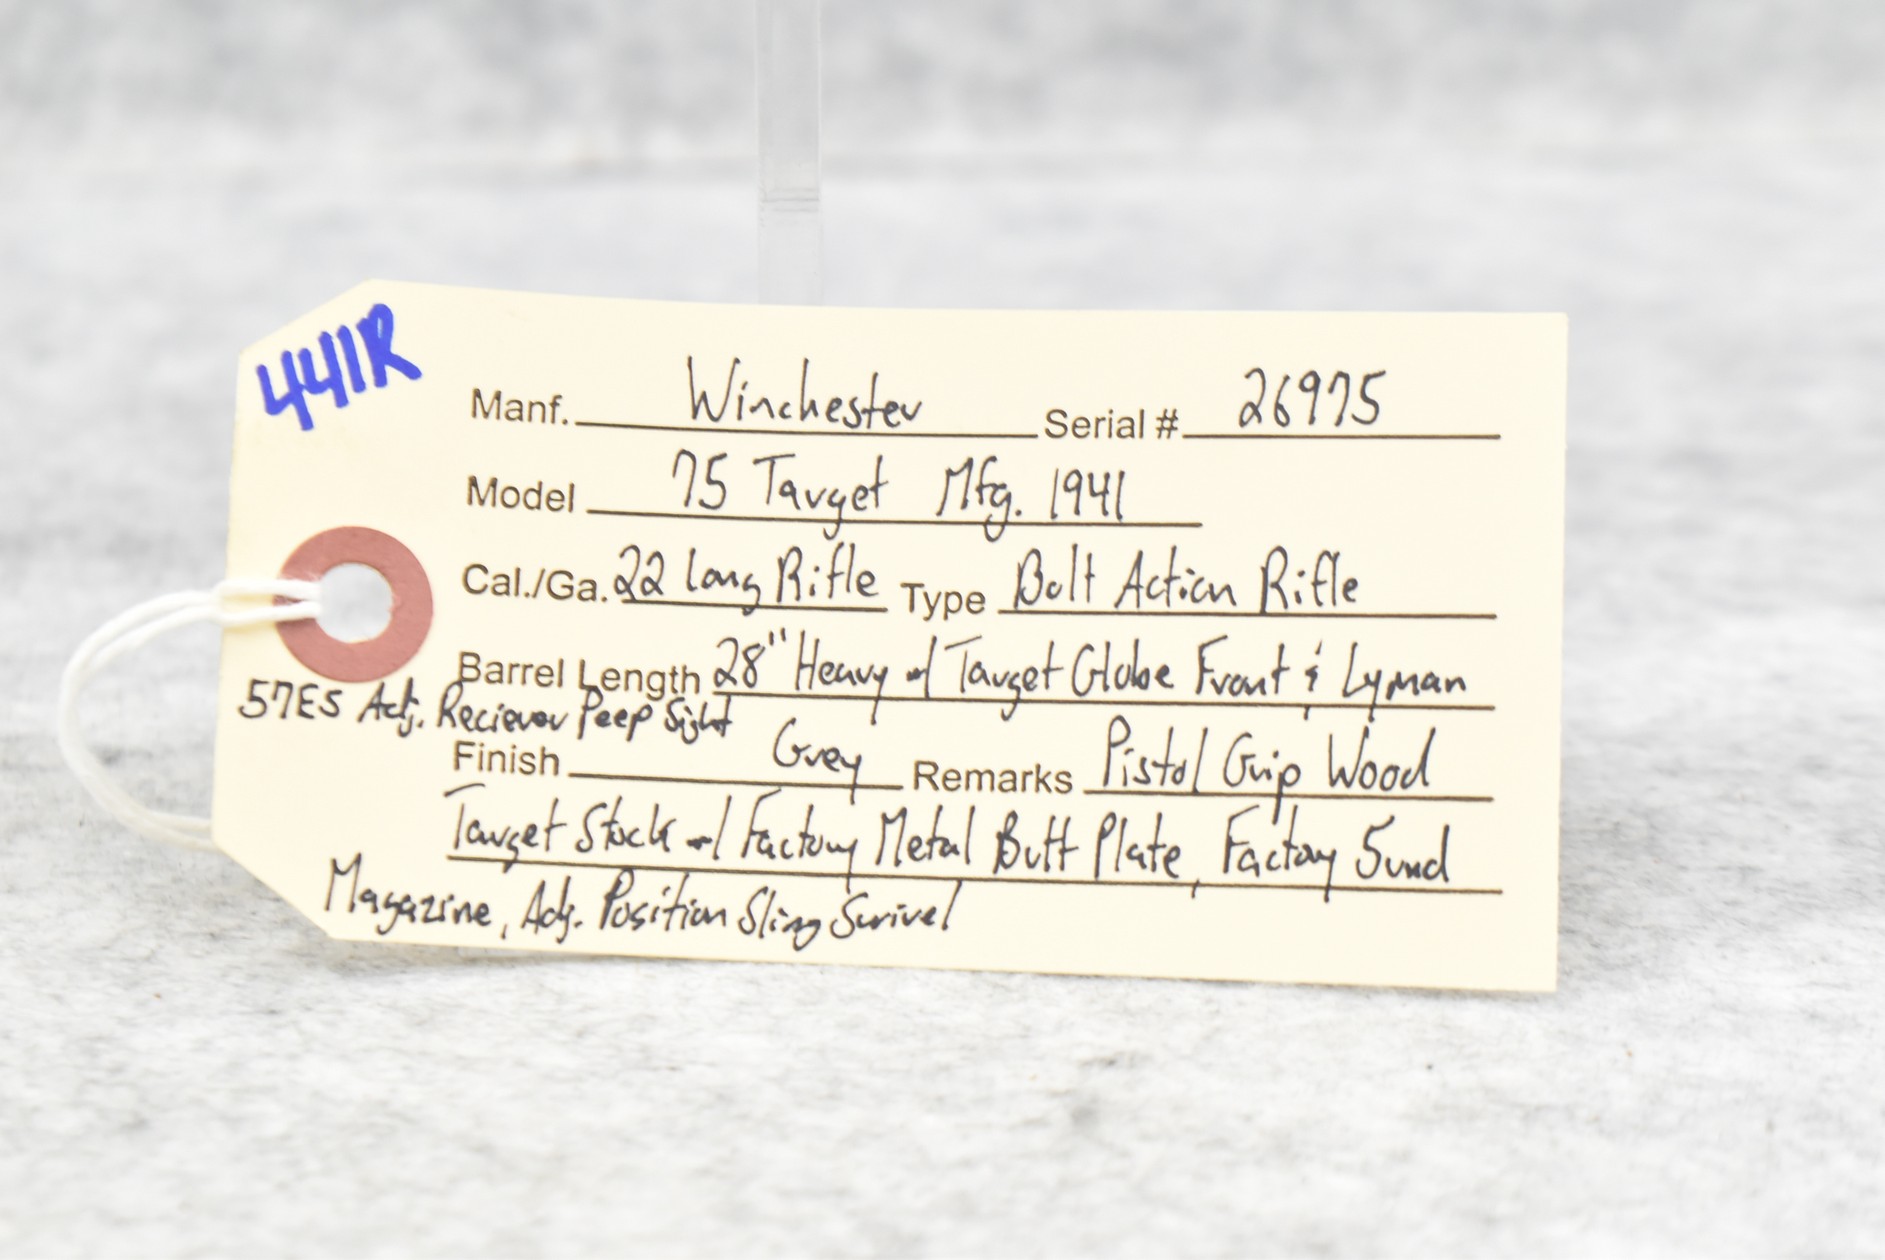 441R
Manf. Winchester Serial # 26975
Model 75 Target Mfg. 1941
Cal./Ga. 22 Long Rifle Type Bolt Action Rifle
Barrel Length 28" Heavy w/ Target Globe Front & Lyman
57E5 Adj. Reciever Peep Sight
Finish Grey Remarks Pistol Grip Wood
Target Stock w/ Factory Metal Butt Plate, Factory 5 rnd
Magazine, Adj. Position Sling Swivel